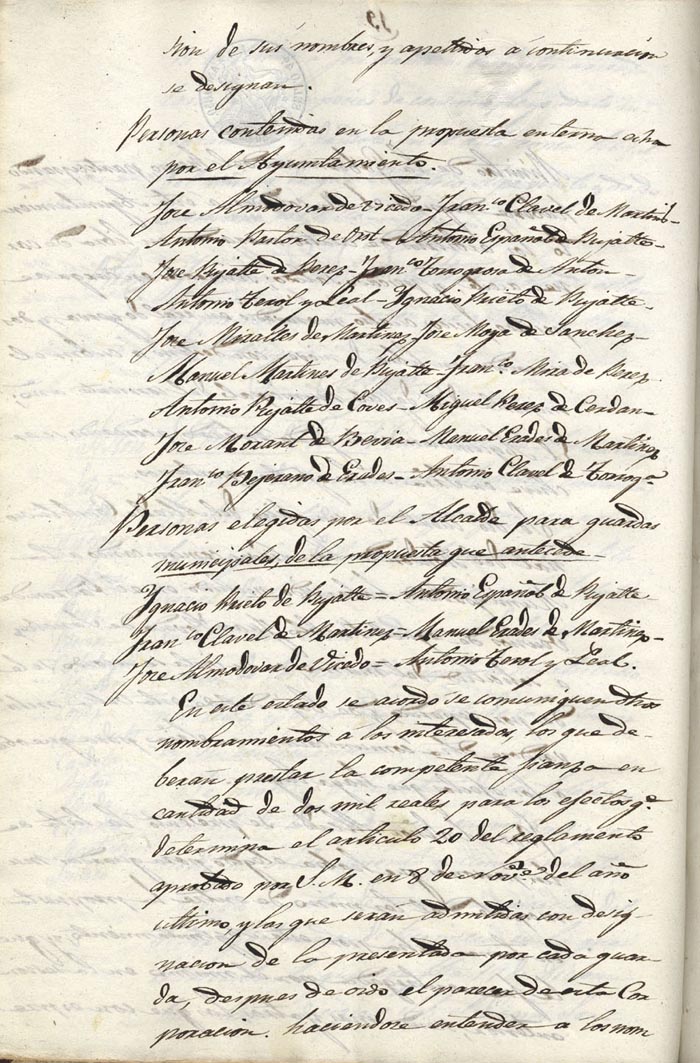 sion de sus nombres, y apellidos a continuacion
se designan.
Personas contenidas en la propuesta en terna echa
por el Ayuntamiento.
Jose Almodovar de Vicedo - Fran.co Clavel de Martin.z -
Antonio Pastor de Ort - Antonio Español de Rijalte -
Jose Rijalte de Perez - Fran.co Torregrosa de Anton -
Antonio Terol y Leal - Ygnacio Prieto de Rijalte -
Jose Miralles de Martinez Jose Moya de Sanchez -
Manuel Martines de Rijalte - Fran.co Mira de Perez
Antonio Rijalte de Coves - Miguel Perez de Cerdan -
Jose Morant de Bevia - Manuel Erades de Martinez
Fran.co Bejerano de Erades - Antonio Clavel de Torreg.a
Personas elegidas por el Alcalde para guardas
municipales, de la propuesta que antecede -
Ygnacio Prieto de Rijalte = Antonio Español de Rijalte
Fran.co Clavel de Martinez = Manuel Erades de Martinez -
Jose Almodovar de Vicedo = Antonio Terol y Leal.
En este estado se acordo se comuniquen
nombramientos a los interesados, los que de-
beran prestar la competente fianza en
cantidad de dos mil reales para los efectos q.e
determina el articulo 20 del reglamento
aprobado por S.M. en 8 de Nov.e del año
ultimo, y los que serán admitidas con desig-
nacion de la presentada por cada guar-
da, despues de oido el parecer de esta Cor-
poracion. haciendose entender a los nom